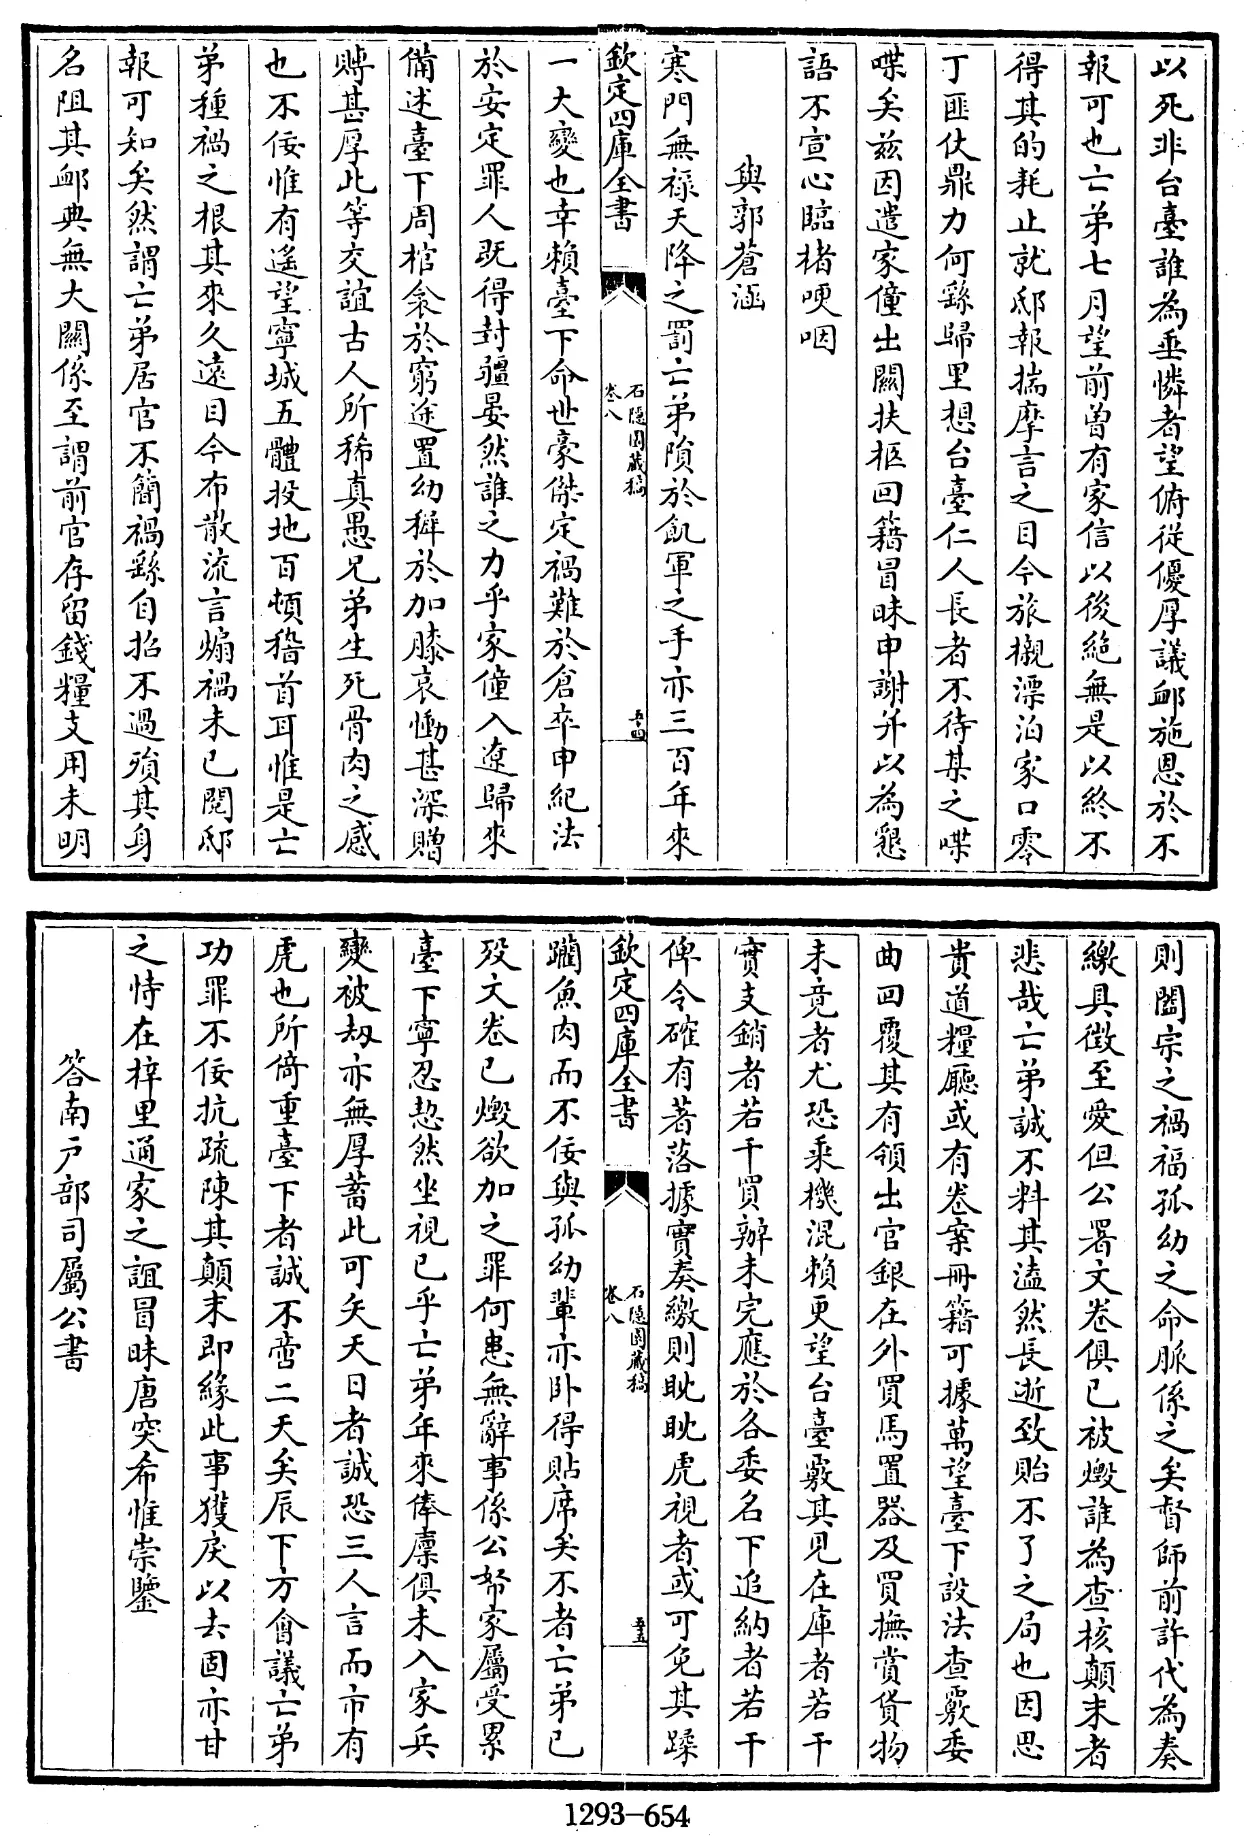 以死非台臺誰為垂憐者望俯從優厚議䘏施恩於不
報可也亡弟七月望前曾有家信以後絶無是以終不
得其的耗止就邸報揣摩言之目今旅櫬漂泊家口零
丁匪仗鼎力何繇歸里想台臺仁人長者不待某之喋
喋矣兹因遣家僮出關扶柩回籍冒昧申謝并以為懇
語不宣心臨楮哽咽
與郭蒼涵
寒門無禄天降之罰亡弟隕於飢軍之手亦三百年來
欽定四庫全書
石隠園藏稿
卷八
五十四
一大變也幸賴臺下命世豪傑定禍難於倉卒申紀法
於安定罪人既得封疆晏然誰之力乎家僮入遼歸來
備述臺下周棺衾於窮途置幼穉於加膝哀慟甚深贈
賻甚厚此等交誼古人所稀真愚兄弟生死骨肉之感
也不佞惟有遙望寧城五體投地百頓稽首耳惟是亡
弟種禍之根其來久遠目今布散流言煽禍未已閲邸
報可知矣然謂亡弟居官不簡禍繇自招不過殞其身
名阻其䘏典無大關係至謂前官存留錢糧支用未明
則闔宗之禍福孤幼之命脈係之矣督師前許代為奏
繳具徴至愛但公署文卷俱已被燬誰為查核顛末者
悲哉亡弟誠不料其溘然長逝致貽不了之局也因思
貴道糧廳或有卷案册籍可據萬望臺下設法查覈委
曲回覆其有領出官銀在外買馬置器及買撫賞貨物
未竟者尤恐乘機混賴更望台臺覈其見在庫者若干
實支銷者若干買辦未完應於各委名下追納者若干
俾令確有著落據實奏繳則眈眈虎視者或可免其蹂
欽定四庫全書
石隠園藏稿
卷八
五十五
躪魚肉而不佞與孤幼輩亦卧得貼席矣不者亡弟已
殁文卷已燬欲加之罪何患無辭事係公帑家屬受累
臺下寧忍恝然坐視已乎亡弟年來俸廩俱未入家兵
變被刼亦無厚蓄此可矢天日者誠恐三人言而市有
虎也所倚重臺下者誠不啻二天矣辰下方會議亡弟
功罪不佞抗疏陳其顛末即緣此事獲戾以去固亦甘
之恃在梓里通家之誼冒昧唐突希惟崇鑒
答南户部司屬公書
1293-654